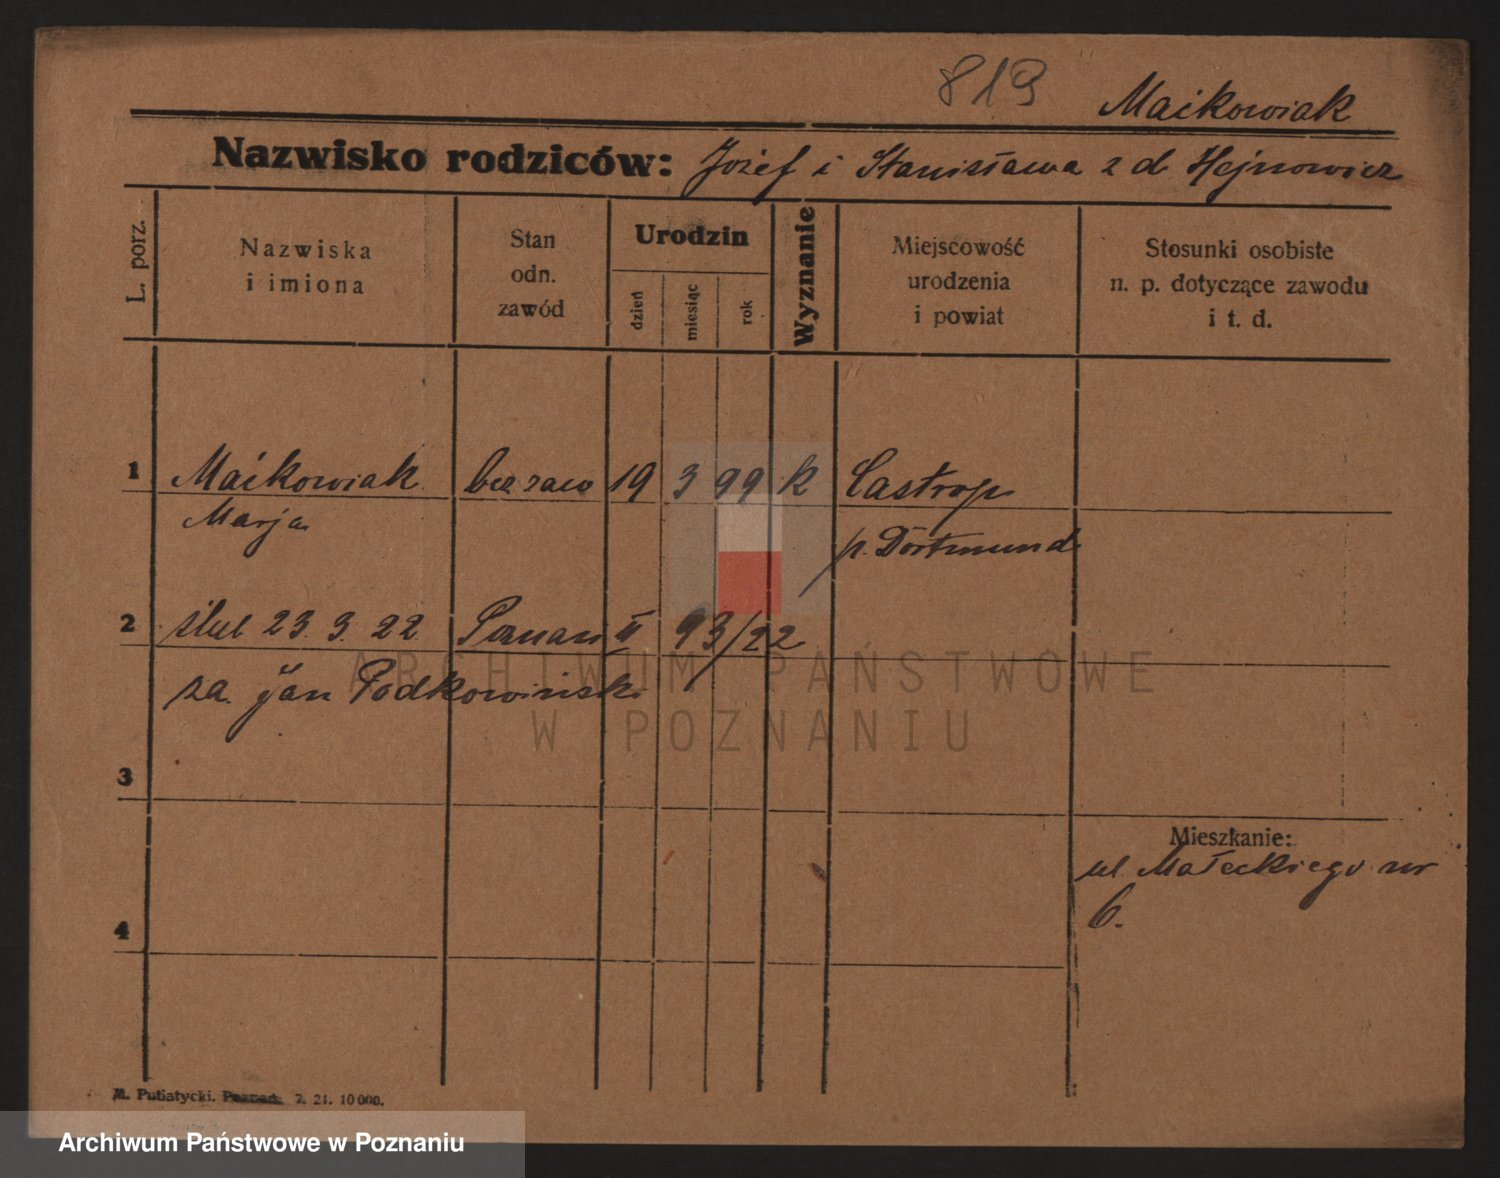 819
Maćkowiak
Nazwisko rodziców: Józef i Stanisława z d Hejnowicz
L. porz.
Nazwiska
i imiona
Stan
odn.
zawód
Urodzin
dzień
miesiąc
rok
Wyznanie
Miejscowość
urodzenia
i powiat
Stosunki osobiste
n. p. dotyczące zawodu
i t. d.
1 Maćkowiak bez zaw 19 3 99 k Castrop
Marja p. Dortmund
2 ślub 23. 3. 22 Poznań III 93/22
za. Jan Podkowiński
ARCHIWUM PAŃSTWOWE
W POZNANIU
3
Mieszkanie:
ul. Małeckiego nr
6.
4
M. Putiatycki. Poznań. 7. 21. 10 000.
Archiwum Państwowe w Poznaniu